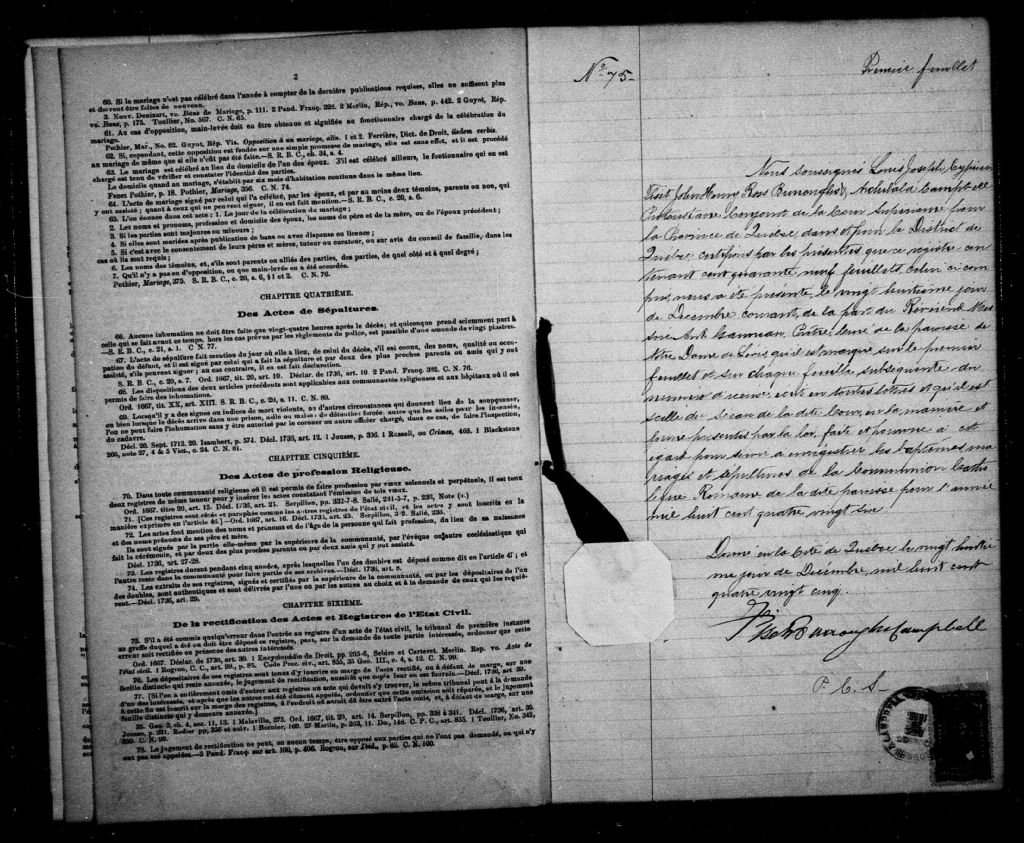 2
60. Si le mariage n'est pas célébré dans l'année à compter de la dernière publications requises, elles ne suffisent plus
et doivent être faites de nouveau.
3. Nouv. Denizart, vo. Bans de Mariage, p. 111. 2 Pand. Franç. 328. 2 Merlin, Rép., vo. Bans, p. 442. 2 Guyot, Rép.
vo. Bans, p. 175. Toullier, No. 567. C. N. 65.
61. Au cas d'opposition, main-levée doit en être obtenue et signifiée au fonctionnaire chargé de la célébration du
mariage.
Pothier, Mar., No. 82. Guyot, Rép. Vis. Opposition à un mariage, alis. 1 et 2. Ferrière, Dict. de Droit, iisdem verbis.
62. Si, cependant, cette opposition est fondée sur une simple promesse de mariage, elle est sans effet, et il est procédé
au mariage de même que si elle n'eût pas été faite.—S. R. B. C., ch. 34, s. 4.
63. Le mariage est célébré au lieu du domicile de l'un des époux. S'il est célébré ailleurs, le fontionnaire qui en est
chargé est tenu de vérifier et constater l'identité des parties.
Le domicile quant au mariage, s'établit par six mois d'habitation continue dans le même lieu.
Fenet Pothier, p. 18. Pothier, Mariage, 356. C. N. 74.
64. L'acte de mariage signé par celui qui l'a célébré, par les époux, et par au moins deux témoins, parents ou non, qui
y ont assisté ; quant à ceux qui ne peuvent signer, il en est fait mention.—S. R. B. C., c. 20, s. 6.
65. L'on énonce dans cet acte : 1. Le jour de la célébration du mariage ;
2. Les noms et pronoms, profession et domicile des époux, les noms du père et de la mère, ou de l'époux précédent ;
3. Si les parties sont majeures ou mineurs ;
4. Si elles sont mariées après publication de bans ou avec dispense ou licence ;
5. Si c'est avec le consentement de leurs pères et mères, tuteur ou curateur, ou sur avis du conseil de famille, dans les
cas où ils sont requis ;
6. Les noms des témoins, et, s'ils sont parents ou alliés des parties, de quel côté et à quel degré ;
7. Qu'il n'y a pas eu d'opposition, ou que main-levée en a été accordée.
Pothier, Mariage, 375. S. R. B. C., c. 20, s. 6, § 1 et 2. C. N. 76.
CHAPITRE QUATRIÈME.
Des Actes de Sépultures.
66. Aucune inhumation ne doit être faite que vingt-quatre heures après le décès; et quiconque prend sciemment part à
celle qui se fait avant ce temps, hors les cas prévus par les règlements de police, est passible d'une amende de vingt piastres.
—S. R. B. C., c. 21, s. 1. C N. 77.
67. L'acte de sépulture fait mention du jour où elle a lieu, de celui du décès, s'il est connu, des noms, qualité ou occu-
pation du défunt, et il est signé par celui qui a fait la sépulture et par deux des plus proches parents ou amis qui y ont
assisté, s'ils peuvent signer ; au cas contraire, il en est fait déclaration.
S. R. B. C., c. 20, s. 7. Ord. 1667, tit. 20, art. 10. Déclar. de 1736, art. 10. 2 Pand. Franç. 382. C. N. 76.
68. Les dispositions des deux articles précédents sont applicables aux communautés religieuses et aux hôpitaux où il est
permis de faire des inhumations.
Ord. 1667, tit. XX, art. XIII. S. R. B. C., c. 20, s. 11. C. N. 80.
69. Lorsqu'il y a des signes ou indices de mort violente, ou d'autres circonstances qui donnent lieu de la soupçonner,
ou bien lorsque le décès arrive dans une prison, asile ou maison de détention forcée, autre que les asiles pour les insensés,
l'on ne peut faire l'inhumation sans y être autorisé par le coroner ou autre officier chargé, dans ce cas, de faire l'inspection,
du cadavre.
Décl. 20. Sept. 1712. 20. Isambert, p. 574. Décl. 1736, art. 12. 1 Jousse, p. 336. 1 Russell, on Crimes, 468. 1 Blackstone
266, note 27, 4 & 5 Vict., c. 24. C. N. 81.
CHAPITRE CINQUIÈME.
Des Actes de profession Religieuse.
70. Dans toute communauté religieuse où il est permis de faire profession par vœux solennels et perpétuels, il est tenu
deux registres de même teneur pour y insérer les actes constatant l'émission de tels vœux.
Ord. 1667, titre 20, art. 15. Décl. 1736, art. 25. Serpillon, pp. 331-7-8. Sallé, 231-5-7, p. 236, Note (s.)
71. [Ces registres sont cotés et paraphés comme les autres registres de l'état civil, et les actes y sont inscrits en la
manière exprimée en l'article 46.]—Ord. 1667, art. 16. Décl. 1731, art. 25. Serpillon, 3-9. Sallé, 236.
72. Les actes font mention des noms et prénoms et de l'âge de la personne qui fait profession, du lieu de sa naissance
et des noms et prénoms de ses père et mère.
Ils sont signés par la partie elle-même par la supérieure de la communauté, par l'évêque ou autre ecclésiastique qui
fait la cérémonie, et par deux des plus proches parents ou par deux amis qui y ont assisté.
Décl. 1736, art. 27-28.
73. Les registres durent pendant cinq années, après lesquelles l'un des doubles est déposé comme dit en l'article 47 ; et
l'autre reste dans la communauté pour faire partie de ses archives.—Décl. 1736, art. 8.
74. Les extraits de ces registres, signés et certifiés par la supérieure de la communauté, ou par les dépositaires de l'un
des doubles, sont authentiques et sont délivrés par l'une ou par les autres au choix et à la demande de ceux qui les requiè-
rent.—Décl. 1736, art. 29.
CHAPITRE SIXIÈME.
De la rectification des Actes et Registres de l'Etat Civil.
75. S'il a été commis quelqu'erreur dans l'entrée au registre d'un acte de l'état civil, le tribunal de première instance
au greffe duquel a été ou doit être déposé ce registre, peut, sur la demande de toute partie intéressée, ordonner que cette
erreur soit rectifiée en présence des autres intéressés.
Ord. 1667. Déclar. de 1736, art. 30. 1 Encyclopédie de Droit, pp. 205-6, Sebire et Carteret. Merlin. Rep. vo. Acte de
l'état civil. 1 Rogron, C. C., art. 99., p. 85. Code Proc. civ., art. 855, 35 Geo. III., c. 4, s. 13. C. N. 99.
76. Les dépositaires de ces registres sont tenus d'y inscrire en marge de l'acte rectifié, ou à défaut de marge, sur une
feuille distincte qui reste annexée, le jugement de rectification, aussitôt que copie leur en est fournie.—Décl. 1736, art. 39.
77. [Si l'on a entièrement omis d'entrer aux registres un acte qui devait s'y trouver, le même tribunal peut à la demande
d'un des intéressés, et après que les autres ont été dûment appelés, ordonner que cette omission soit réparée, et le jugement
à cette fin est inscrit sur la marge des registres, à l'endroit où aurait dû être entré l'acte omis, et, à défaut de marge, sur une
feuille distincte qui y demeure annexée.]
35. Geo. 3, ch. 4, sec. 11, 13. 1 Maleville, 375. Ord. 1667, tit. 20, art. 14. Serpillon, pp. 338 à 341. Décl. 1736, art. 30.
Jousse, p. 321. Rodier pp. 356 et suiv. 1 Bornier, 169. 27 Merlin, p. 263, 11. Do., 148. C. P. C., art. 855. 1 Toullier, No. 342,
350. C. N. 99.
78. Le jugement de rectification ne peut, en aucun temps, être opposé aux parties qui ne l'ont pas demandée, ou qui n'y
ont pas été appelées.—2 Pand. Franç. sur art. 100, p. 406. Rogron, sur Ibid., p. 85. C. N. 100.
No. 75
Premier feuillet
Nous soussignés Louis Joseph Cyprien
Fiset John Henry Ross Burroughs, Archibald Campbell
Protonotaire Conjoint de la Cour Supérieure pour
la Province de Québec, dans et pour le District de
Québec certifions par les présentes que ce registre con
tenant cent quarante neuf feuillets, celui ci com
pris, nous a été présenté, le vingt huitième jour
de Décembre courant, de la part du Révérend Mes
sire Ant. Gauvreau Prêtre, Curé de la paroisse de
Notre Dame de Lévis qu'il est marqué sur le premier
feuillet et sur chaque feuille subséquente du
numéro d'icelui écrit en toutes lettres et qu'il est
scellé du Sceau de la dite Cour, en la manière et
forme prescrites par la loi, faite et pourvue à cet
égard pour servir à enregistrer les baptêmes ma
riages et sépultures de la Communion Catho
lique Romaine de la dite paroisse pour l'année
mil huit cent quatre vingt six.
Donné en la Cité de Québec le vingt huitiè
me jour de Décembre, mil huit cent
quatre vingt cinq.
Fiset Burroughs Campbell
P. C. S.